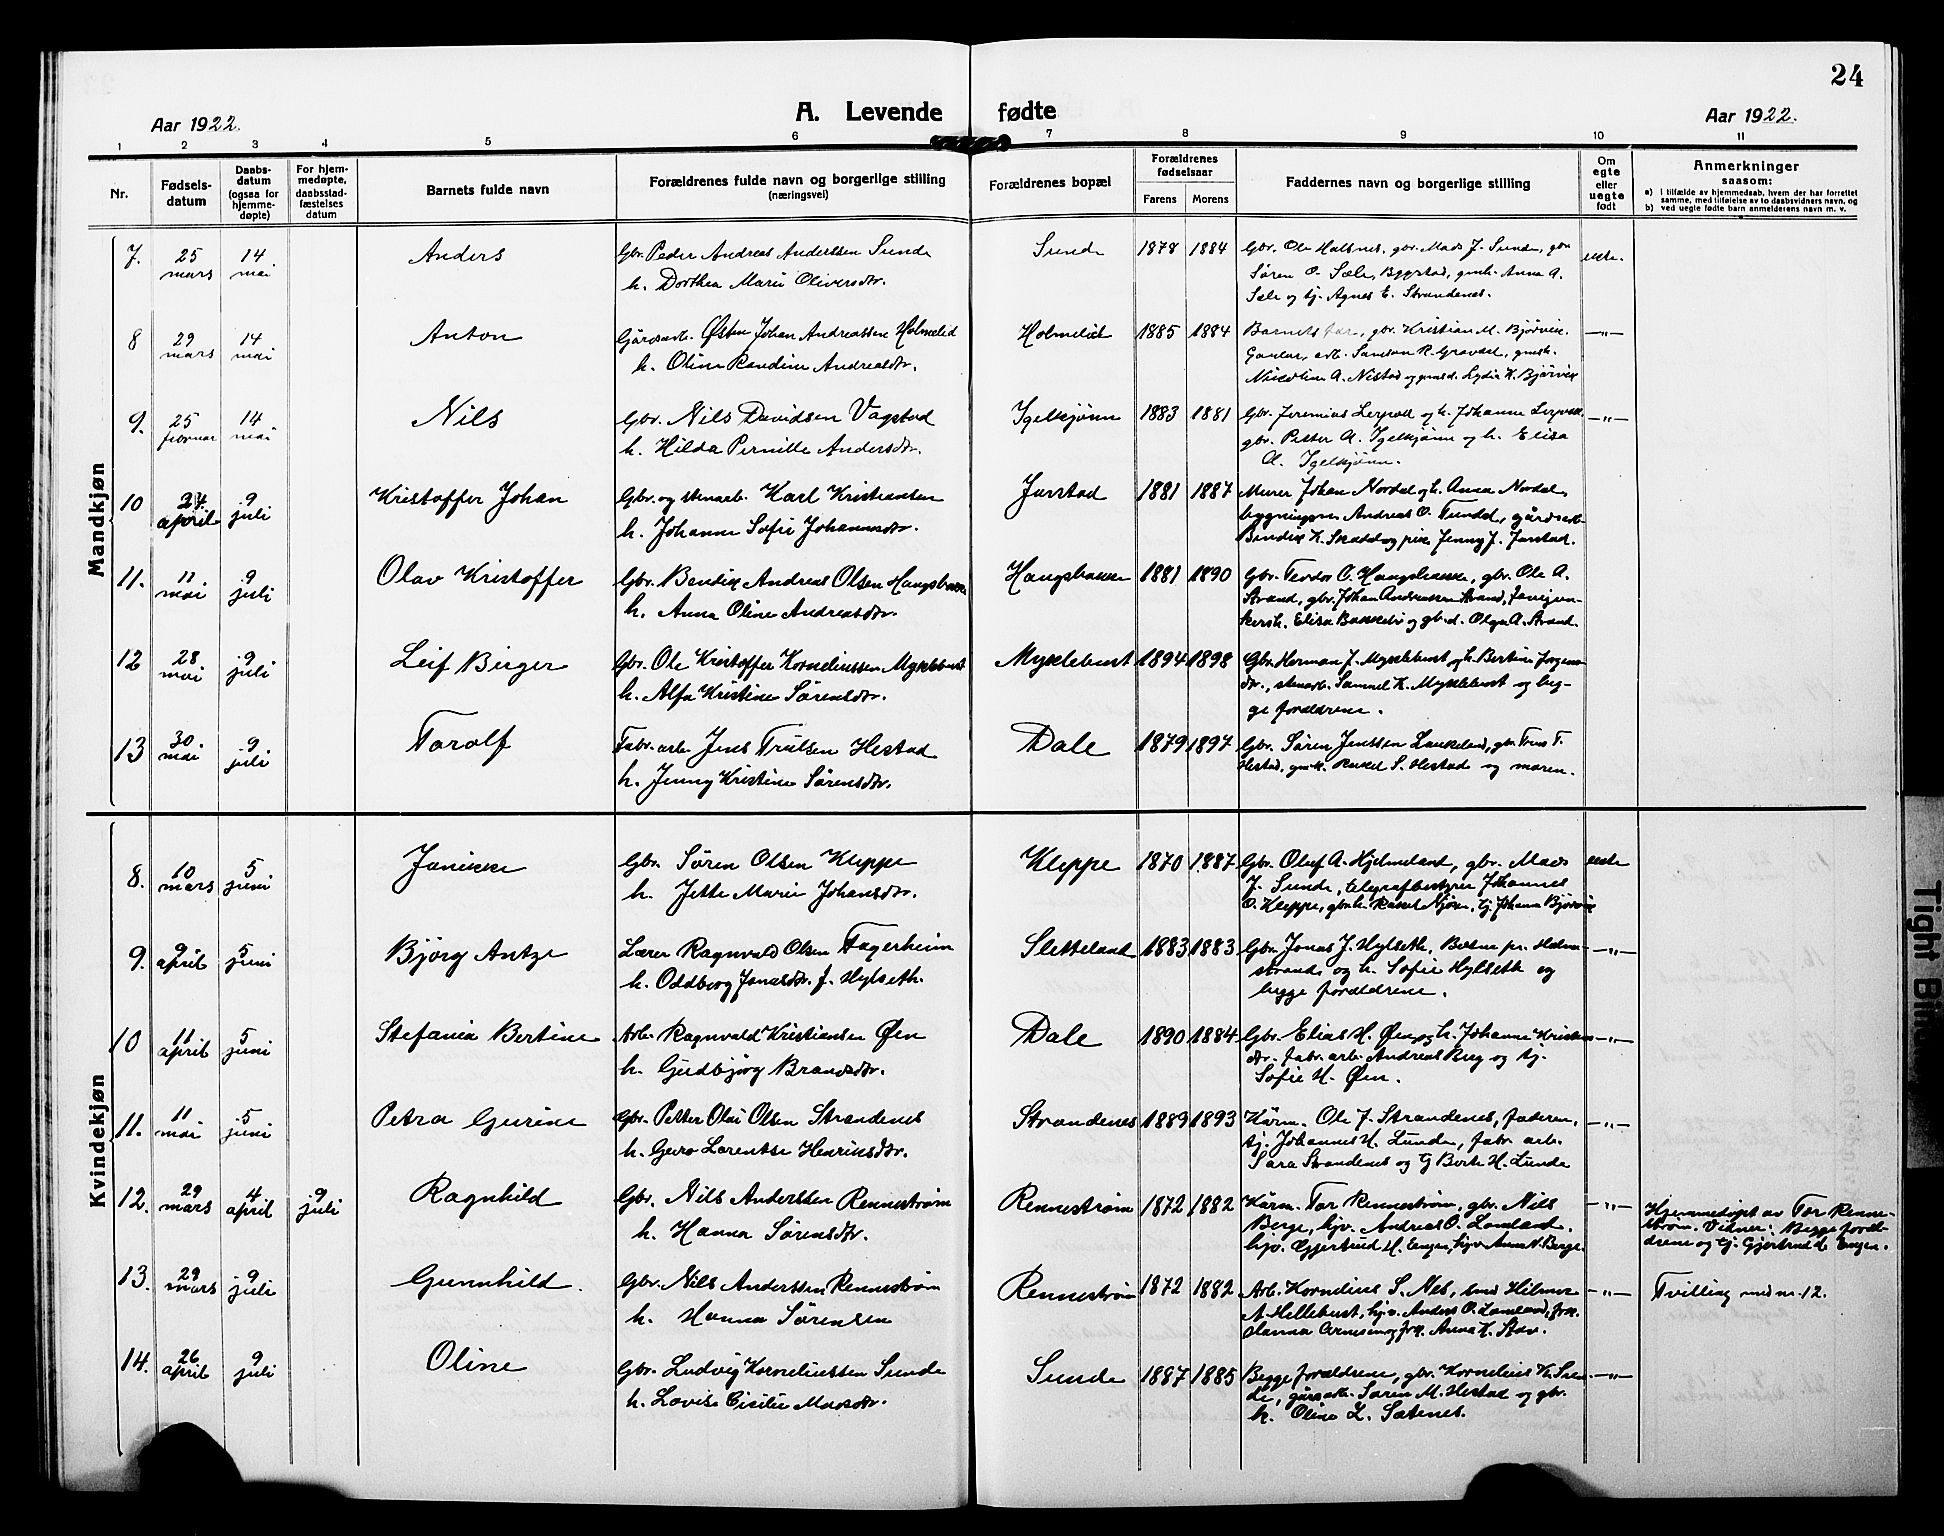 24
A. Levende fødte
Aar 1922.
Aar 1922.
1 2 3 4 5 6 7 8 9 10 11
Nr.
Fødselsdatum
Daabsdatum (ogsaa for hjemmedøpte)
For hjemmedøpte, daabsstadfæstelses datum
Barnets fulde navn
Forældrenes fulde navn og borgerlige stilling
(næringsvei)
Forældrenes bopæl
Forældrenes fødselsaar
Farens Morens
Faddernes navn og borgerlige stilling
Om egte eller uegte født
Anmerkninger
saasom:
a) i tilfælde av hjemmedaab, hvem der har forrettet
samme, med tilføielse av to daabsvidners navn, og
b) ved uegte fødte barn anmelderens navn m. v.
Mandkjøn
7. 25 mars 14 mai Anders Gbr. Peder Andreas Anderssen Sunde Sunde 1878 1884 Gbr. Ole Halsnes, gbr. Mads J. Sunde, gbr
h. Dorthea Marie Oliversdtr. Søren O. Sæle, Bygstad, gmh. Anna A.
Sæle og tj. Agnes E. Strandenes.
8 29 mars 14 mai Anton Gårdsarb. Østen Johan Andreassen Holmelid Holmelid 1885 1884 Barnets far, gbr. Kristian M. Bjørvik
h. Oline Randine Andreasdtr. Gaular, arb. Samson R.
Nikoline A. Nistad og Lydia K. Bjørvik
9. 25 februar 14 mai Nils Gbr. Nils Davidsen Vagstad Igelkjønn 1883 1881 Gbr. Jeremias Lervoll og h. Johanne
h. Hilda Pernille Andersdtr. gbr. Petter A. Igelkjønn og h. Elisa
A. Igelkjønn.
10 24. april 9 juli Kristoffer Johan Gbr. og stenarb. Karl Kristiansen Jarstad 1881 1887 Murer Johan Nordal og h. Anna Nordal,
h. Johanne Sofie Johannesdtr. Andreas O. gårdsarb.
Bendix K. og pike Jenny J. Jarstad.
11. 11 mai 9 juli Olav Kristoffer Gbr. Bendix Andreas Olsen Haugsbakke Haugsbakke 1881 1890 Gbr. Teodor O. Haugsbakke, gbr. Ole A.
h. Anna Oline Andreasdtr. Strand, gbr. Johan Andreassen Strand,
Elisa og gb.d. Olga A. Strand.
12 28 mai 9 juli Leif Birger Gbr. Ole Kristoffer Korneliussen Myklebust Myklebust 1894 1898 Gbr. Herman J. Myklebust og h. Bertine Jørgens-
h. Alfa Kristine Sørensdtr. dtr., stenarb. Samuel K. Myklebust og beg-
ge forældrene.
13 30 mai 9 juli Torolf Fabr. arb. Jens Trulsen Hestad Dale 1879 1897 Gbr. Søren Jenssen Laukeland, gbr. T.
h. Jenny Kristine Sørensdtr. Hestad, gmh. Rakel S. Hestad og moren.
Kvindekjøn
8. 10 mars 5 juni Janikke Gbr. Søren Olsen Kleppe Kleppe 1870 1887 Gbr. Oluf A. Hjelmeland, gbr. Mads
h. Jette Marie Johansdtr. J. Sunde, telegrafbestyrer Johannes
O. Kleppe, gbrh. tj. Johanna Bjørvik
9. 9 april 5 juni Bjørg Antze Lærer Ragnvald Olsen Fagerheim Sletteland 1883 1883 Gbr. Jonas J. Hylseth, pr. Holm-
h. Oddborg Jonasdtr. f. Hylseth. strand og h. Sofie Hylseth og
begge forældrene.
10 11 april 5 juni Stefania Bertine Arb. Ragnvald Kristiansen Øen Dale 1890 1884 Gbr. Elias H. Øen og h. Johanne Kristens-
h. Gudbjørg Brandsdtr. dtr. fabr. arb. Andreas Berg og tj.
Sofie H. Øen.
11. 11 mai 5 juni Petra Gurine Gbr. Petter Olai Olsen Strandenes Strandenes 1889 1893 Kårm. Ole J. Strandenes, faderen,
h. Guro Lorentse Henriksdtr. tj. Johannes H. Lunde, fabr. arb.
Sara Strandenes og tj Berte H. Lunde
12. 29 mars 4 april 9 juli Ragnhild Gbr. Nils Anderssen Rennestrøm Rennestrøm 1872 1882 Kårm. Tor Rennestrøm, gbr. Nils
h. Hanna Sørensdtr. Berge, hjv. Andreas O. Lomland,
hjv. Gjertrud H. Engen, hjv Anna N. Berge.
Hjemmedøpt av Tor Renne-
strøm. Vidner: Begge foræl-
drene og tj. Gjertrud H. Engen.
13. 29 mars 9 juli Gunnhild. Gbr. Nils Anderssen Rennestrøm Rennestrøm 1872 1882 Arb. Kornelius S. Nes, Hilmar
h. Hanna Sørensen A. Hellebust, hjv. Anders O. Lomland, frk.
Hanna Arnesen og frk. Anna K. Stav.
Tvilling med nr. 12.
14. 26 april 9 juli Oline Gbr. Ludvig Korneliussen Sunde Sunde 1887 1885 Begge forældrene, gbr. Kornelius K. Sun-
h. Lovise Cicilie Madsdtr. de, gårdarb. Søren M. Hestad og gbr.
h. Oline L. Sætenes.
Tight Bin